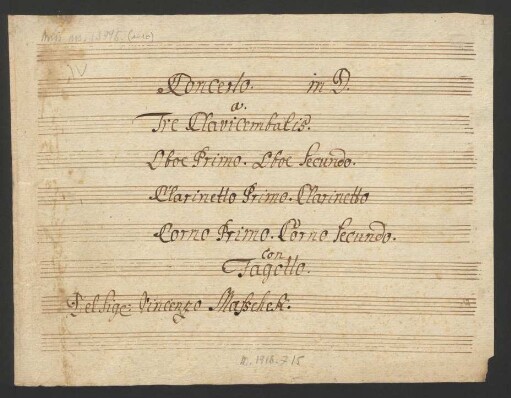 IV
Concerto. in D.
a.
Tre Clavicembalis.
Oboe Primo. Oboe Secundo.
Clarinetto Primo. Clarinetto
Corno Primo. Corno Secundo.
con
Fagotto.
Del Sigre Vincenzo Maschek.